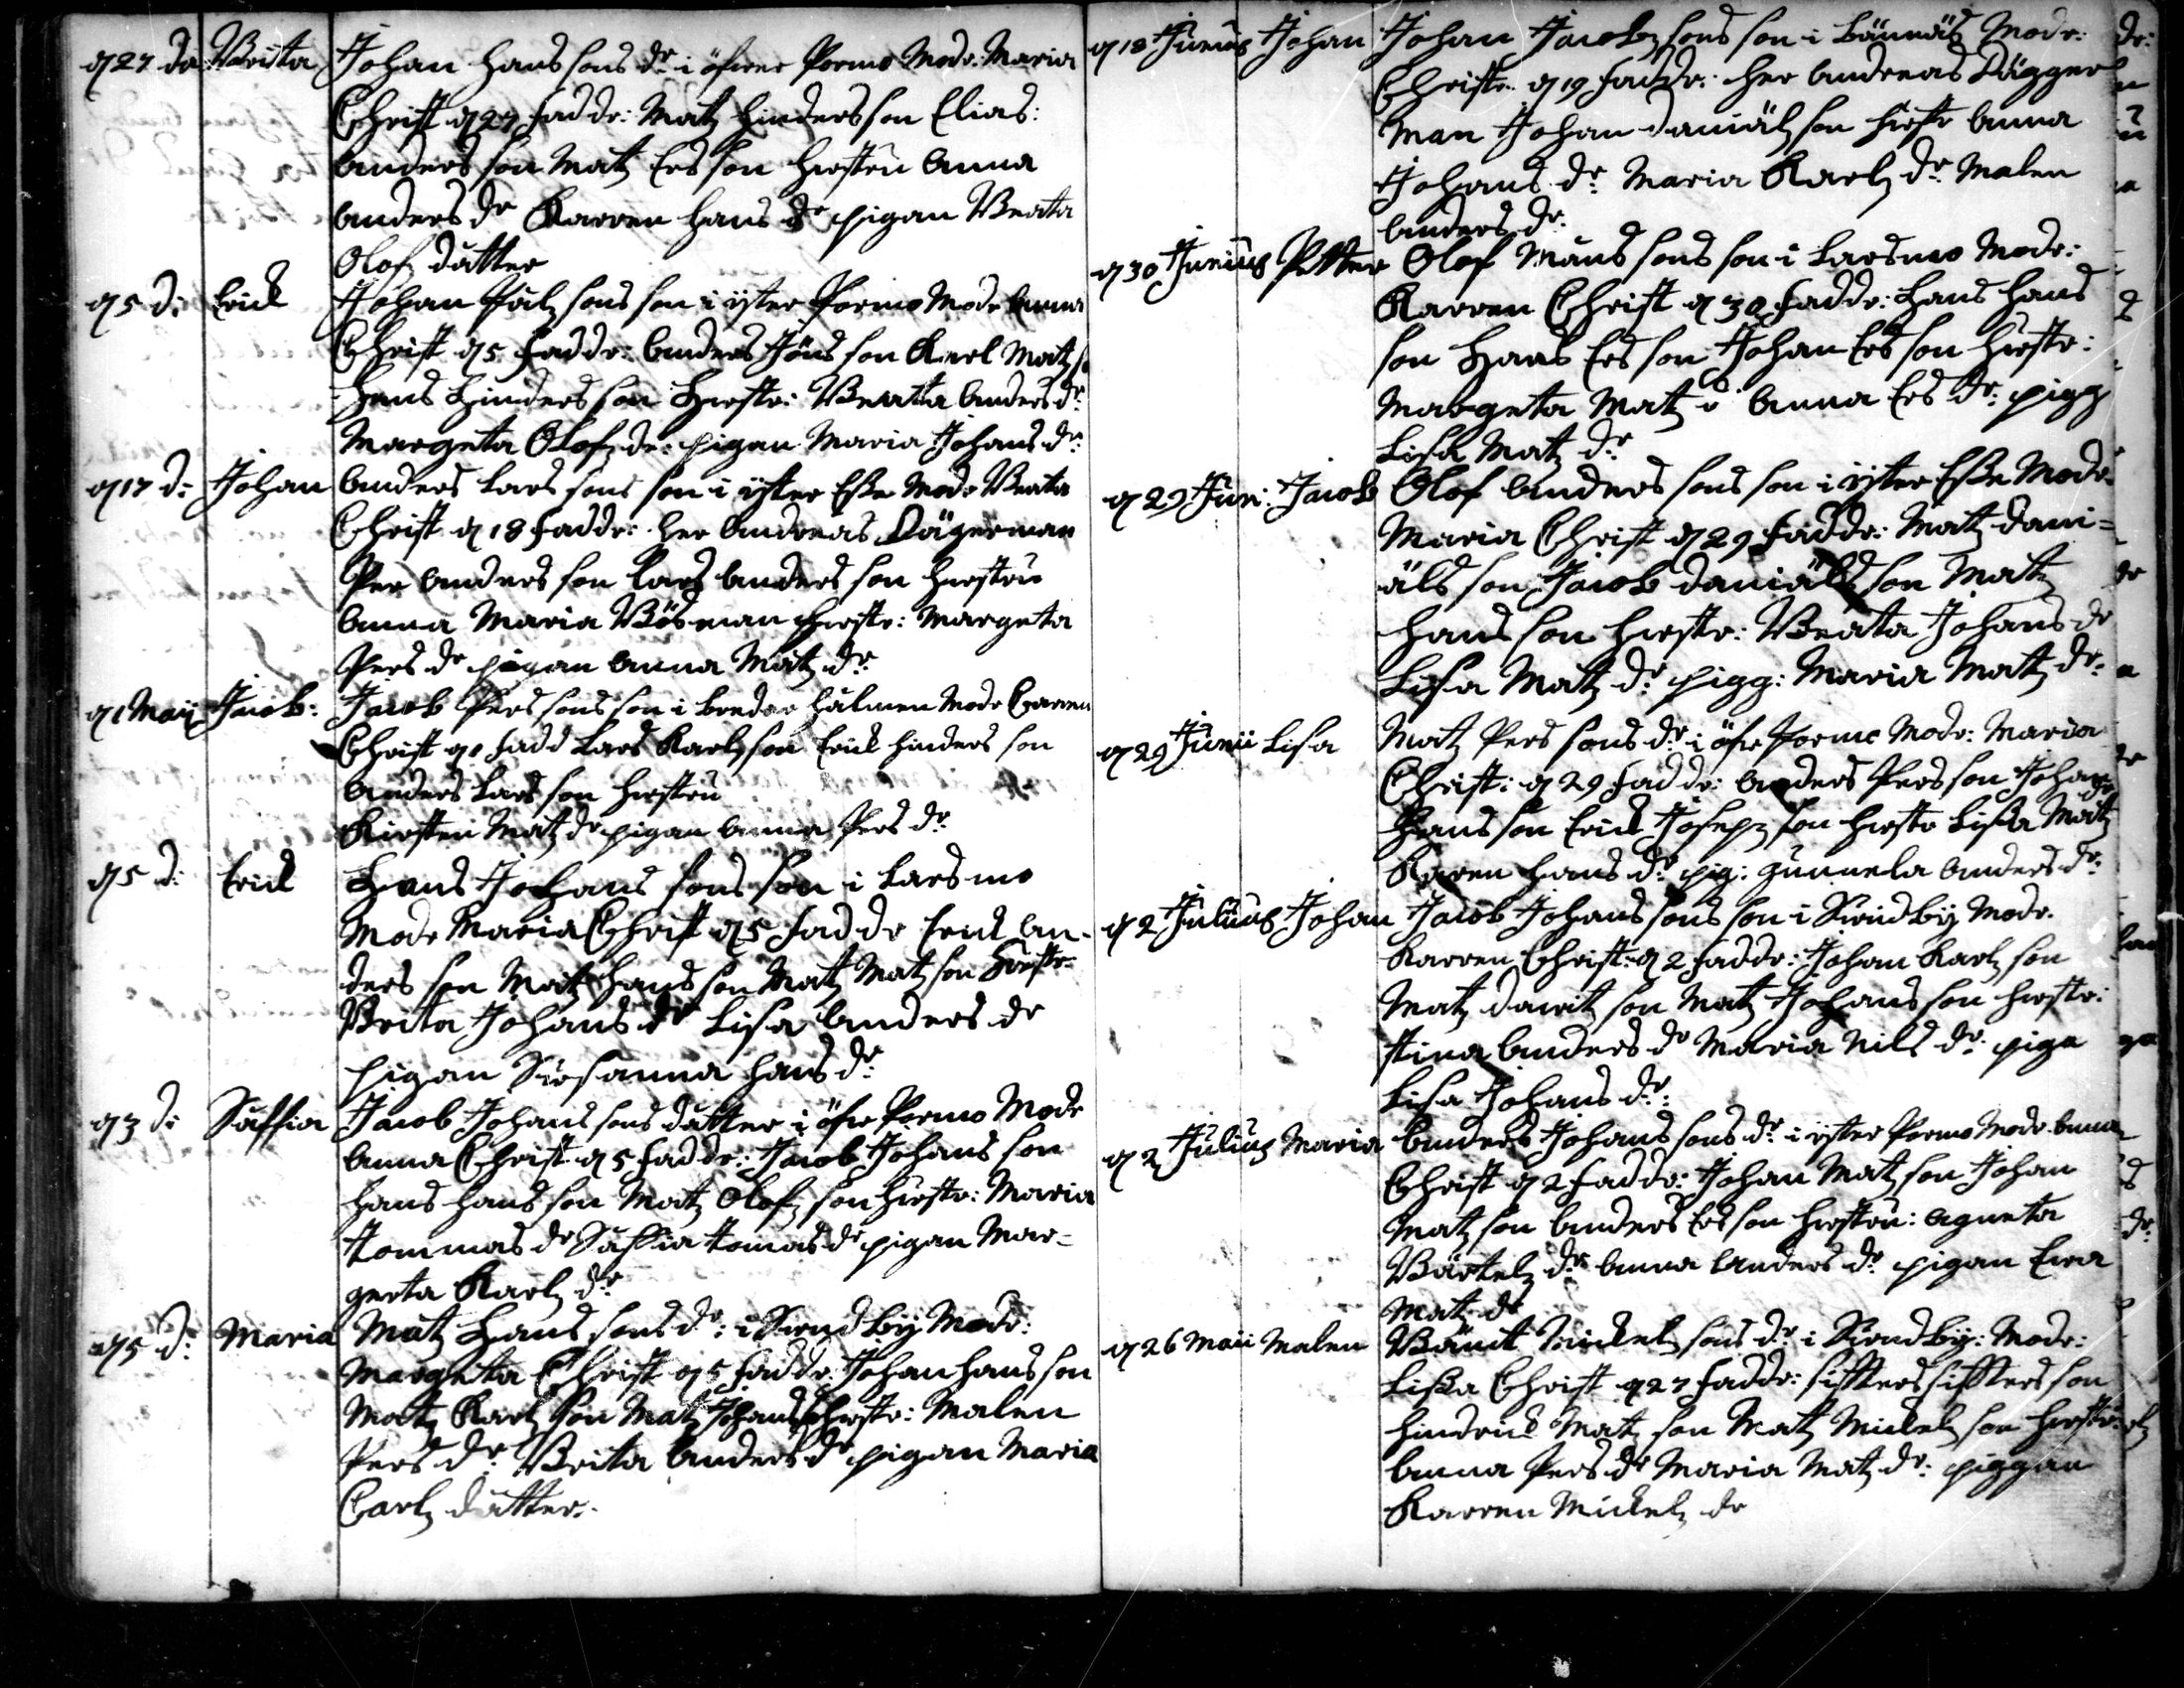 d 27 do Brita Johan Hans sons dr i öfwer Pormo Modr: Maria
Christ d 27 Faddr: Matz Hinders son Elias:
Anders son Matz Ers son Hustru Anna
Anders dr Karren Hans dr pigan Beata
Olofz dåtter
d 5 d: Erick Johan Pålz sons son i ytter Pormo Modr Anna
Christ d 5 Faddr: Anders Jöns son Karl Matz s
Hans Hinders son Hustr: Beata Anders dr
Margeta Olofz dr: pigan Maria Johans dr:
d 17 d: Johan Anders Lars sons son i ytter Esse Modr Beata
Christ d 18 Faddr: her Andreas Dägerman
Per Anders son Lars Anders son Hustru
Anna Maria Bösman Hustr: Margeta
Pers dr pigan Anna Matz dr:
d 1 Maij Jacob: Jacob Pers sons son i Bredar Hålmen Modr Carren
Christ d 1 Fadd Lars Karlz son Erick Hinders son
Anders Lars son Hustru
Kirstin Matz dr pigan Anna Pers dr:
d 5 d: Erick Hans Johans sons son i Larsmo
Modr Maria Christ d 5 Faddr Erick An-
ders son Matz Hans son Matz Matz son Hustr:
Brita Johans dr Lisa Anders dr
pigan Susanna Hans dr:
d 3 d: Saffia Jacob Johans sons dåtter i öfwr Pormo Modr
Anna Christ d 5 Faddr: Jacob Johans son
Hans Hans son Matz Olofz son Hustr: Maria
Tommas dr Saffia Tomas dr pigan Mar=
geta Karlz dr
d 5 d: Maria Matz Hans sons dr: i Sundby Modr:
Margeta Christ d 5 Faddr: Johan Hans son
Matz Karlz son Matz Johans s Hustr: Malen
Pers dr: Brita Anders dr pigan Maria
Carlz dåtter:
d 18 Junius Johan Johan Jacobz sons son i Bännäs Modr:
Christ: d 19 Faddr: her Andreas Dägger
man Johan Daniälz son Hustr Anna
Johans dr: Maria Karlz dr: Malen
Anders dr:
d 30 Junius Petter Olof Måns sons son i Larsmo Modr:
Karren Christ d 30 Faddr: Hans Hans
son Hans Ers son Johan Ers son Hustr:
Margeta Matz d Anna Ers dr: pigg
Lisa Matz dr
d 29 Jun: Jacob Olof Anders sons son i ytter Esse Modr:
Maria Christ d 29 Faddr: Matz Dani=
äls son Jacob Daniäls son Matz
Hans son Hustr: Beata Johans dr
Lisa Matz dr: pigg: Maria Matz dr:
d 29 Junii Lisa Matz Pers sons dr: i öfwr Pormo Modr: Maria
Christ: d 29 Faddr: Anders Pers son Johan
Hans son Erick Josepz son Hustr Lissa Matz dr
Karen Hans dr: pig: Gunnela Anders dr:
d 2 Julius Johan Jacob Johans sons son i Sundby Modr.
Karren Christ: d 2 Faddr: Johan Karlz son
Matz Dawit son Matz Johans son Hustr:
Stina Anders dr Maria Nils dr: piga
Lisa Johans dr:
d 2 Julius Maria Anders Johans sons dr: i ytter Pormo Modr Anna
Christ d 2 Faddr: Johan Matz son Johan
Matz son Anders Ers son Hustru: Agneta
Bärtelz dr: Anna Anders dr: pigan Ewa
Matz dr
d 26 Maii Malen Bänit Mickelz sons dr: i Sundby: Modr:
Lissa Christ d 27 Faddr: siffters siffters son
Hindrick Matz son Matz Mickelz son Hustr:
Anna Pers dr Maria Matz dr: piggan
Karren Mickelz dr